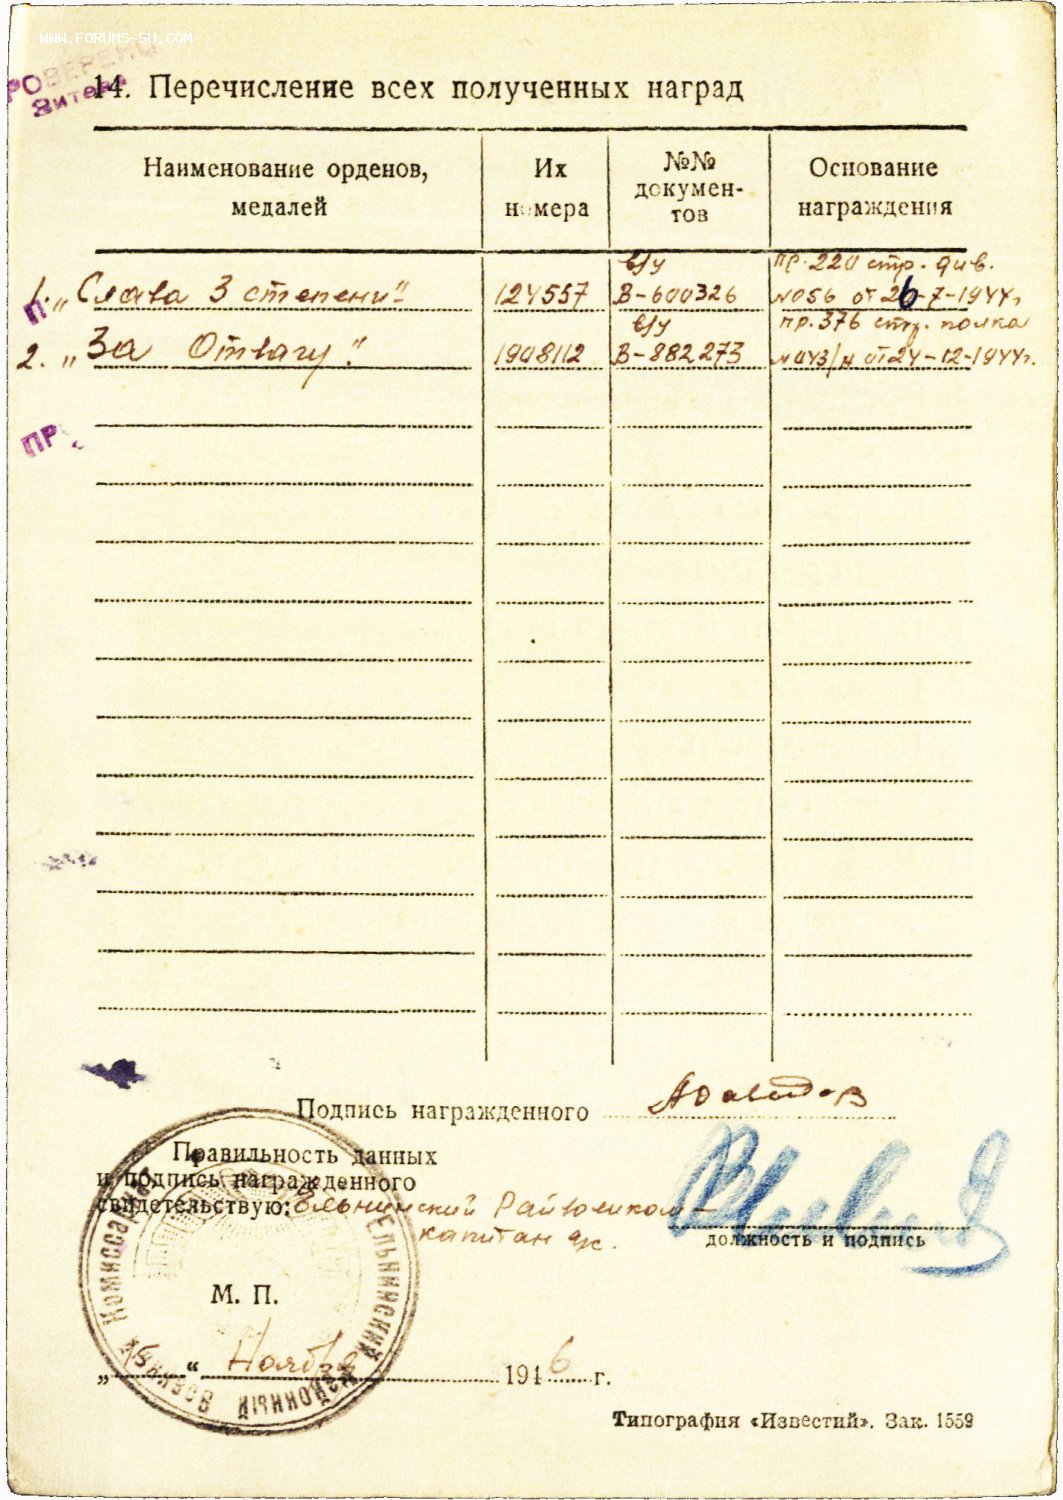 WWW.FORUMS-SU.COM
14. Перечисление всех полученных наград
Наименование орденов, медалей
Их номера
№№ докумен-тов
Основание награждения
1. „Слава 3 степени“ 124557 в/у В-600326 пр. 220 стр. див. №056 от 26-7-1944г
2. „За Отвагу“. 1908112 в/у В-882273 пр. 376 стр. полка №043/н от 24-12-1944г.
Подпись награжденного
Правильность данных
и подпись награжденного
свидетельствую: Ельнинский Райвоенком-
капитан
должность и подпись
М. П.
„ “ Ноября 1946 г.
Ельнинский Районный Военный Комиссариат
Типография «Известий». Зак. 1559